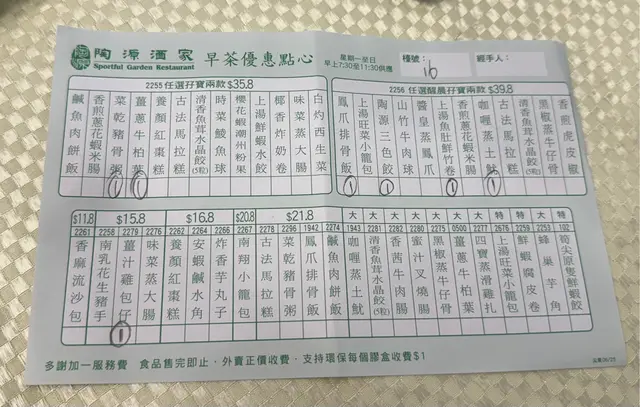 陶源酒家
Sportful Garden Restaurant
早茶優惠點心
星期一至日
早上7:30至11:30供應
檯號:
16
經手人:
2255 任選孖寶兩款 $35.8
鹹魚肉餅飯
香煎蔥花蝦米腸
菜乾豬骨粥
薑蔥牛柏葉
養顏紅棗糕
古法馬拉糕
清香魚茸水晶餃(5粒)
時菜鯪魚球
櫻花蝦潮州粉果
上湯鮮蝦水餃
椰香炸奶卷
味菜蒸大腸
白灼西生菜
2256 任選醒晨孖寶兩款 $39.8
鳳爪排骨飯
上湯旺菜小籠包
陶源三色餃
山竹牛肉球
醬皇蒸鳳爪
上湯魚肚鮮竹卷
香煎蔥花蝦米腸
咖喱蒸土魷
清香魚茸水晶餃(5粒)
黑椒蒸牛仔骨
香煎虎皮椒
$11.8 $15.8 $16.8 $20.8 $21.8 大 大 大 大 大 大 大 特 特 特 特
2261 2258 2279 2276 2262 2274 2246 2267 2278 2296 1942 2284 1943 2281 2282 2280 2275 0500 2277 2676 2259 2253 102
香麻流沙包
南乳花生豬手
薑汁雞包仔
味菜蒸大腸
養顏紅棗糕
安蝦鹹水角
炸香芋丸子
南翔小籠包
古法馬拉糕
菜乾豬骨粥
鳳爪排骨飯
鹹魚肉餅飯
咖喱蒸土魷
清香魚茸水晶餃(5粒)
香茜牛肉腸
蜜汁叉燒腸
黑椒蒸牛仔骨
薑蔥牛柏葉
四寶蒸滑雞扎
上湯旺菜小籠包
鮮蝦腐皮卷
蜂巢芋角
筍尖原隻鮮蝦餃
多謝加一服務費 食品售完即止，外賣正價收費，支持環保每個膠盒收費$1